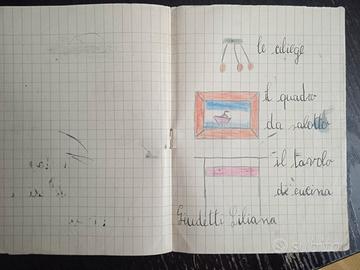 le ciliege
il quadro
da salotto
il tavolo
da cucina
Giudetti Liliana